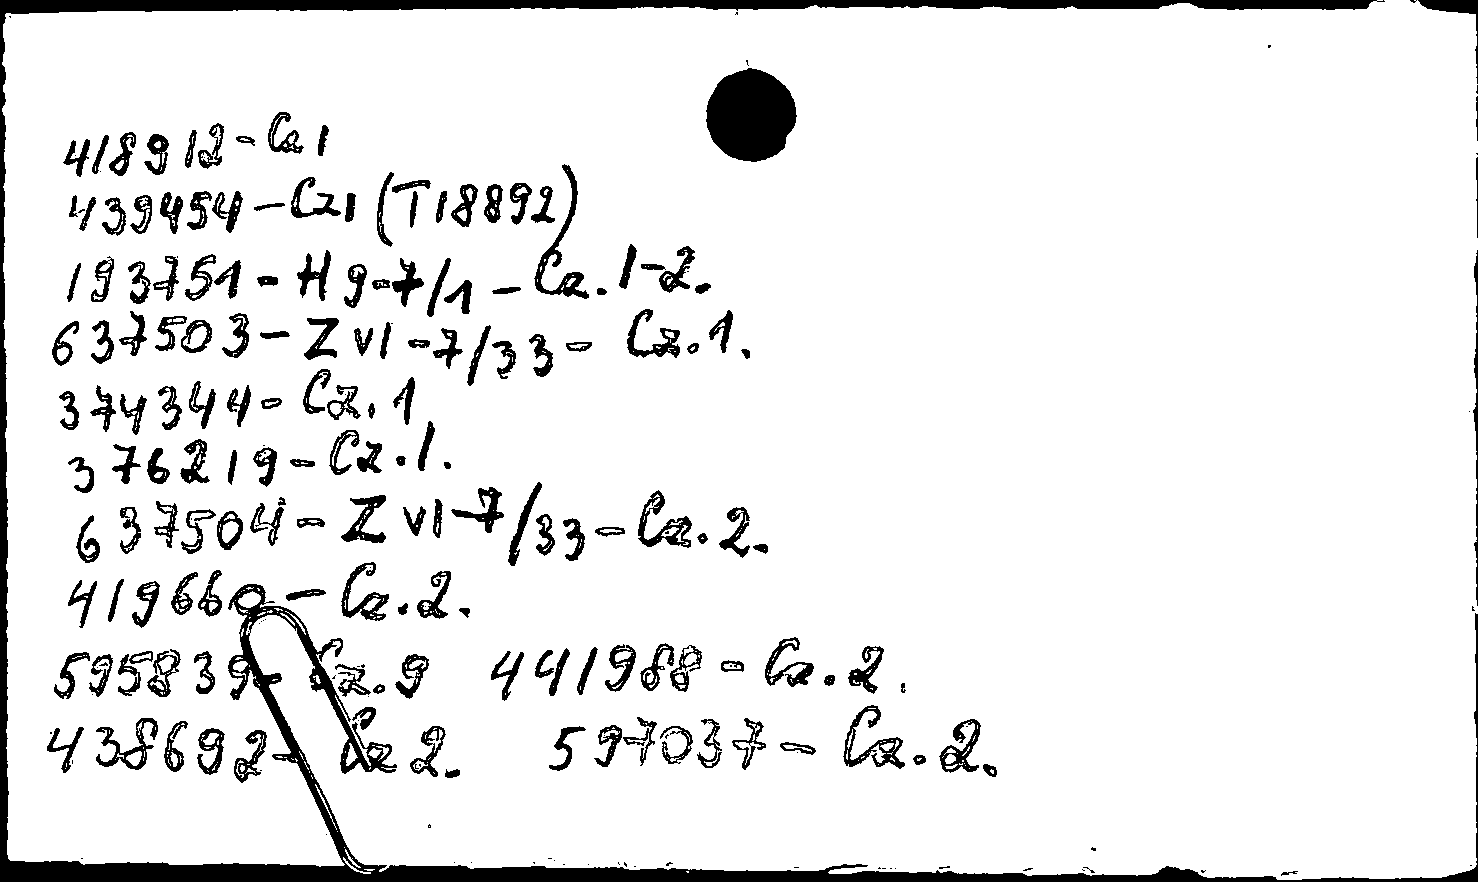 418912-Cz 1
439454-Cz1 (T18892)
193751-H 9-7/1-Cz.1-2.
637503-Z VI-7/33-Cz.1.
374344-Cz.1
376219-Cz.1.
637504-Z VI-7/33-Cz.2.
419660-Cz.2.
595839-Cz.9 441988-Cz.2.
438692-Cz 2. 597037-Cz.2.